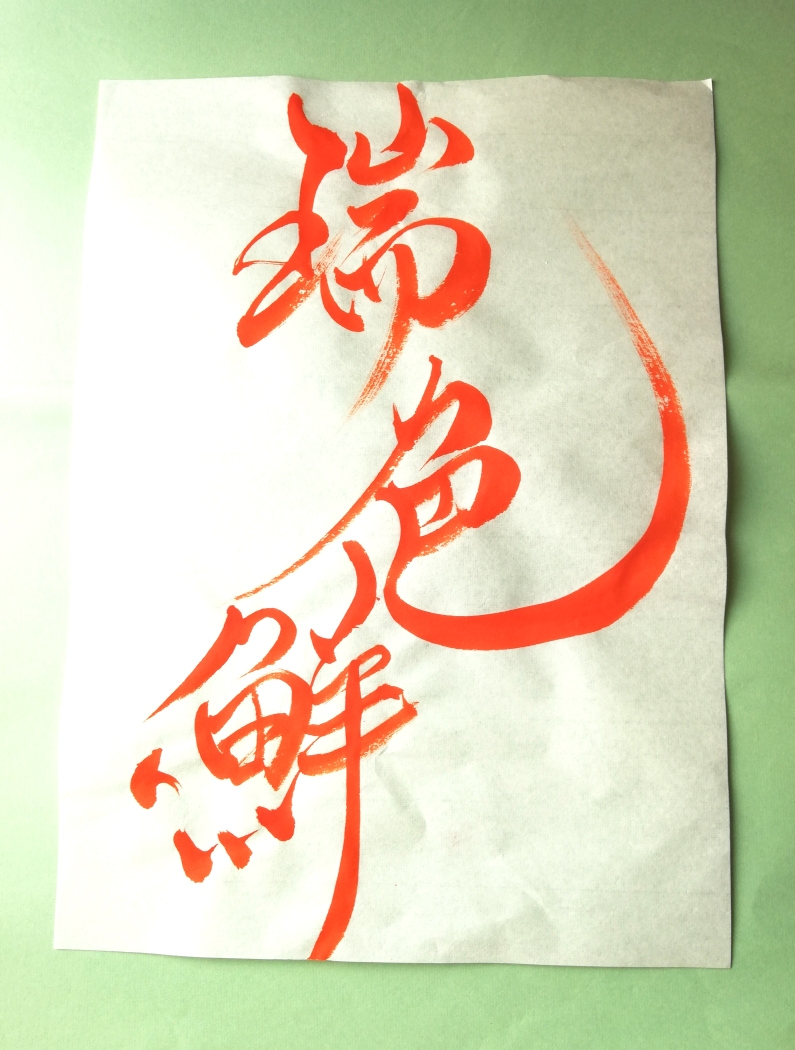 瑞色鮮